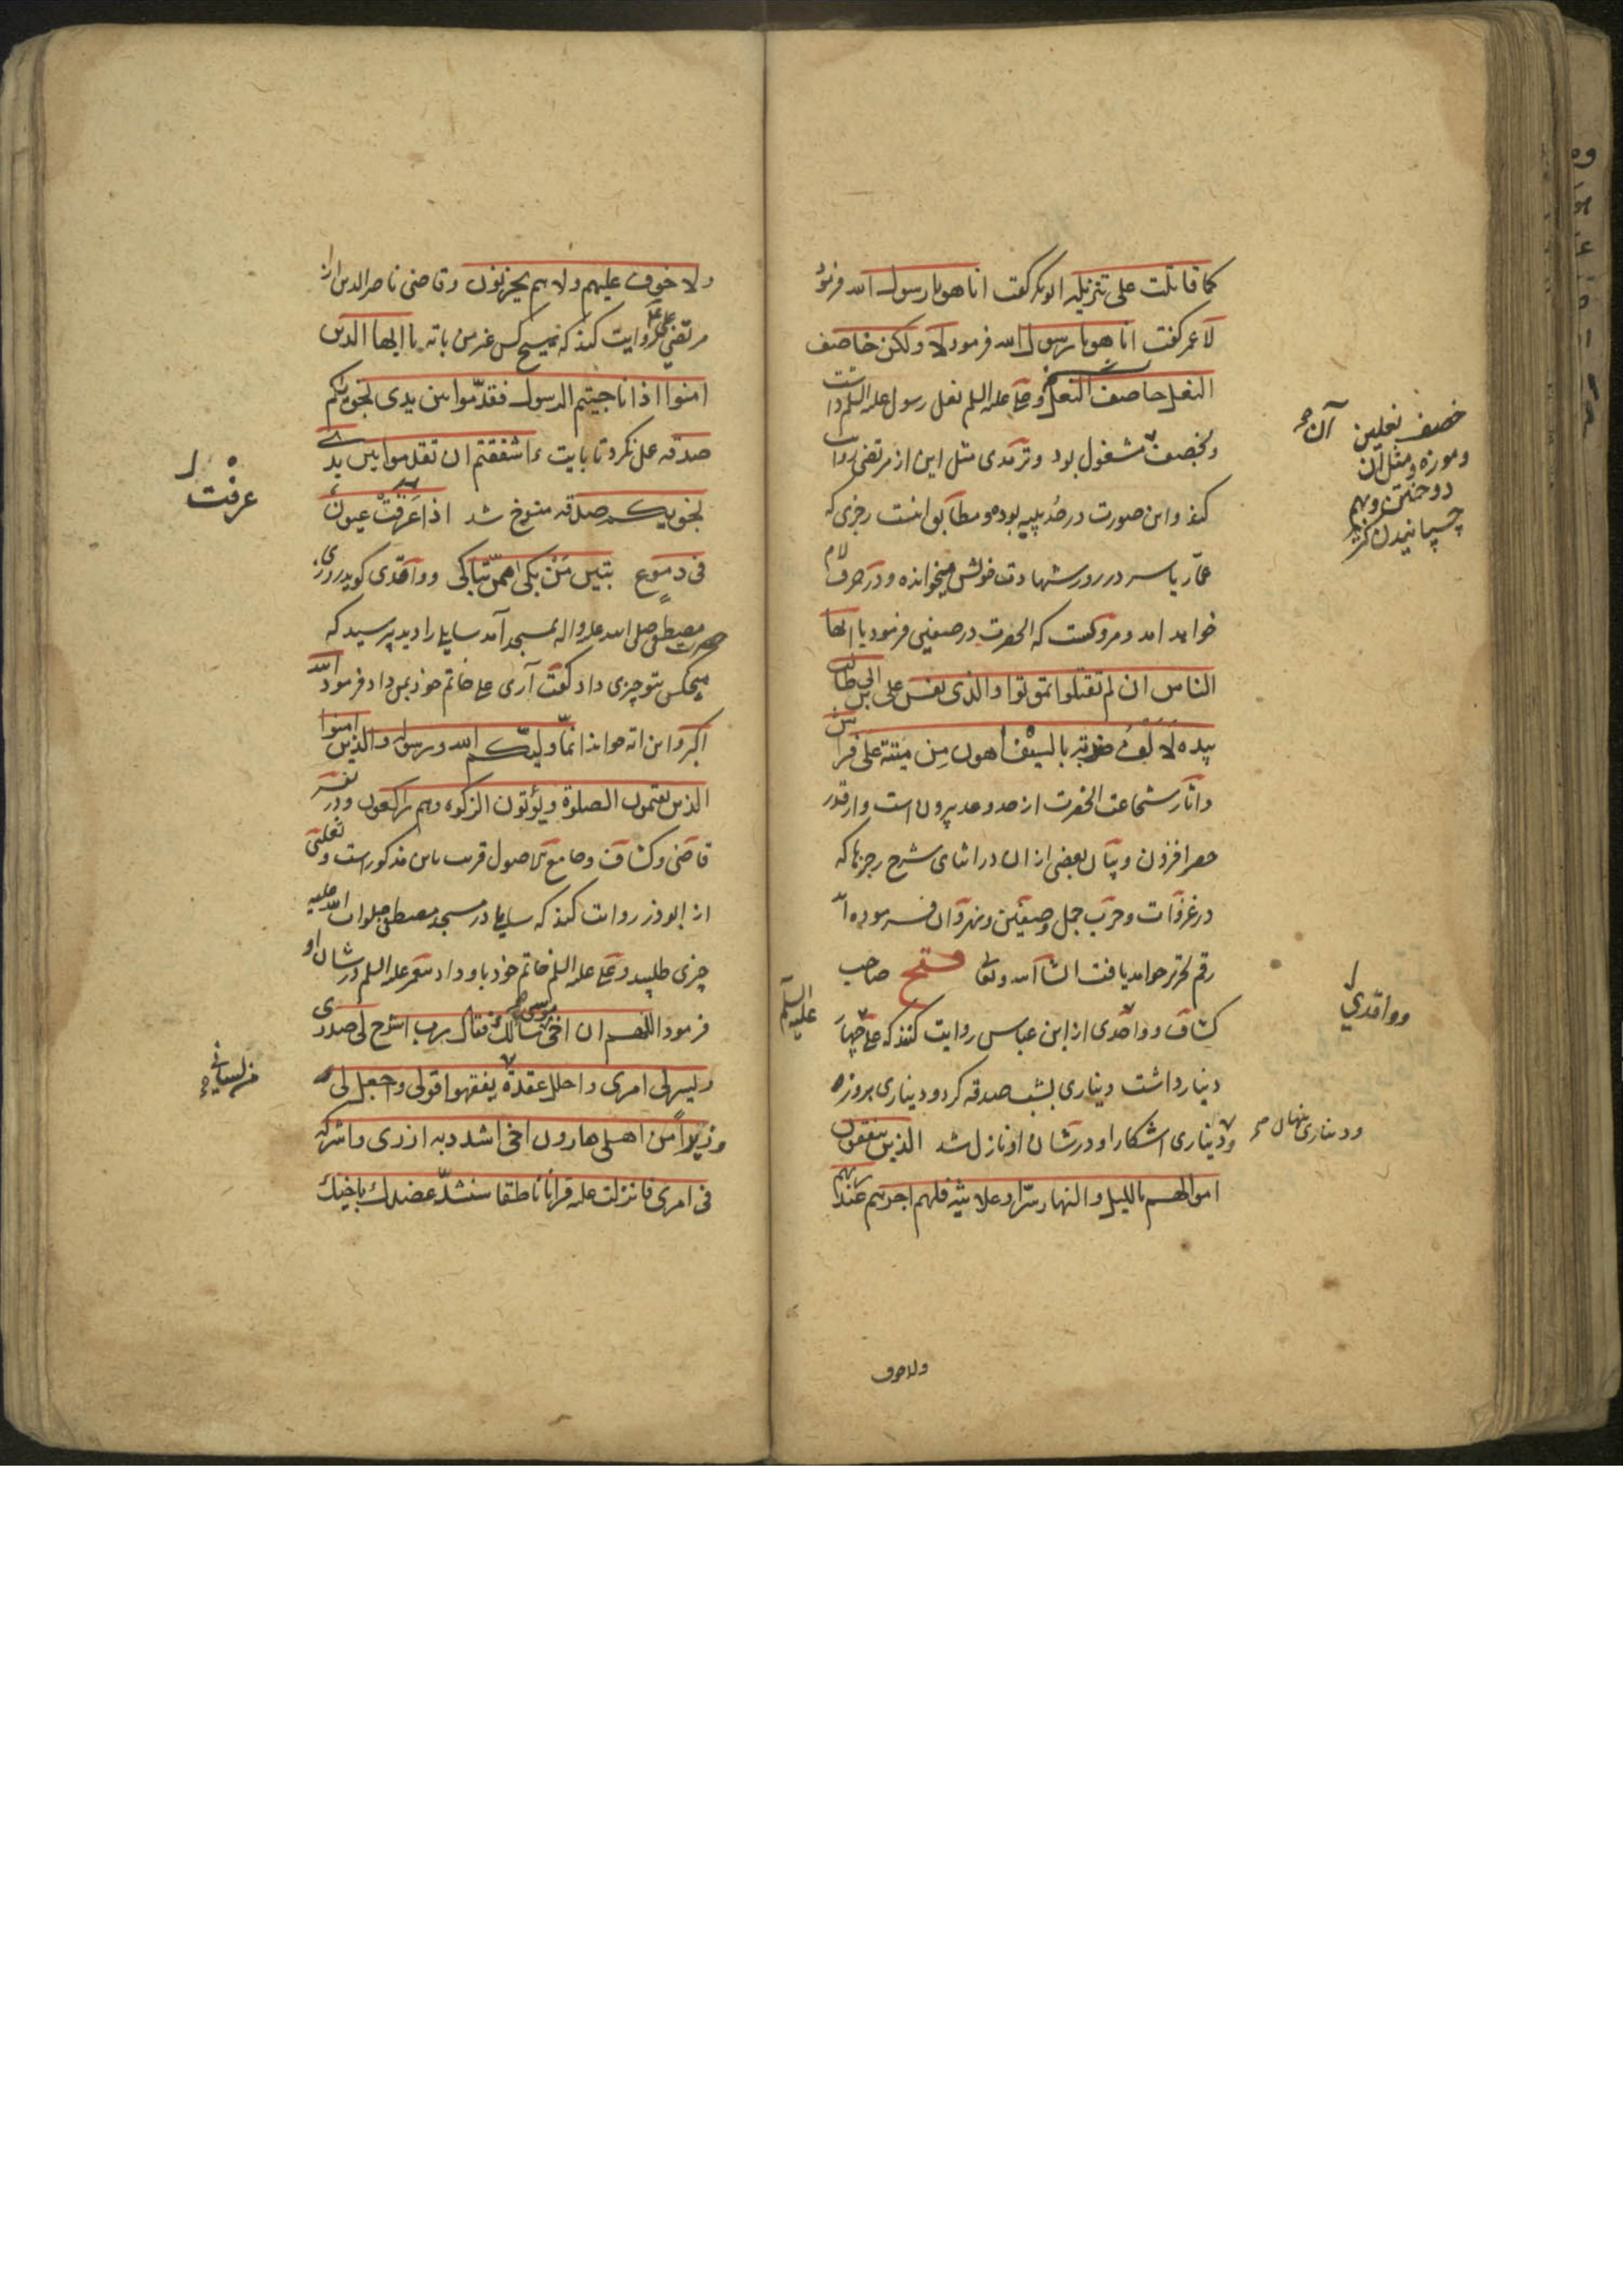 كما قاتلت على تنزيله ابوبكر گفت انا هو يا رسول الله فرمود
لا عمر گفت انا هو يا رسول الله فرمود لا ولكن خاصف
النعل خاصف النعل و علی علیه السلم نعل رسول علیه السلم داشت
و بخصف مشغول بود و ترمذی مثل این از مرتضی روایت
کند و این صورت در حدیبیه بود و مطابق اینست رجزی که
عمّار یاسر در روز شهادت خویش میخوانده و در حرف لام
خواهد امد و مرویست که انحضرت در صفین فرمود یا ایها
الناس ان لم تقتلوا تموتوا والذى نفس على ابن ابى طالب
بيده لالف ضربة بالسيف اهون من ميتة على فراش
و اثار شجاعت انحضرت از حد و عد بیرون است و از قدر
حصر افزون و بیان بعضی از ان در اثنای شرح رجزها که
در غزوات و حرب جمل و صفین و نهروان فرموده
رقم تحریر خواهد یافت انشا الله و تعالی فتح صاحب
کشاف و واقدی از ابن عباس روایت کنند که علی چهار
دینار داشت دیناری بشب صدقه کرد و دیناری بروز
و دیناری اشکارا و در شان او نازل شد الذین ینفقون
اموالهم بالليل والنهار سرّا وعلانية فلهم اجرهم عند ربهم
ولاخوف
خصف نعلین
و موزه و مثل آن
دوختن و بهم
چسپانیدن
وواقدي
ودیناری پنهان
علیه السلم
ولا خوف عليهم ولا هم يحزنون و قاضی ناصر الدین از
مرتضی علی روایت کند که هیچ کس غیر من بایه یا ایها الذین
امنوا اذا ناجيتم الرسول فقدّموا بين يدى نجويكم
صدقه عمل نکرد تا بایت ءاشفقتم ان تقدموا بين يدى
نجويكم صدقه منسوخ شد اذا غرقت عيون
فى دموع تبين من بكى ممن تباكى و واقدی گوید روزی
حضرت مصطفی صلی الله علیه و اله بمسجد آمد سایلی را دید پرسید که
هیچکس بتو چیزی داد گفت آری علی خاتم خود بمن داد فرمود الله
اکبر و این ایه خواند انما وليكم الله ورسوله والذين امنوا
الذين يقيمون الصلوة ويؤتون الزكوة وهم راكعون و در تفسیر
قاضی و کشاف و جامع الاصول قریب باین مذکور است و ثعلبی
از ابوذر روایت کند که سایلی در مسجد مصطفی صلوات الله علیه
چیزی طلبید و علی علیه السلم خاتم خود باو داد پیغمبر علیه السلم در شان او
فرمود اللهم ان اخى موسى سالك فقال رب اشرح لى صدرى
ويسر لى امرى واحلل عقدة يفقهوا قولى واجعل لى
وزيرا من اهلى هارون اخى اشدد به ازرى واشركه
فى امرى فانزلت عليه قرانا ناطقا سنشدّ عضدك باخيك
عرفت
من لسانی